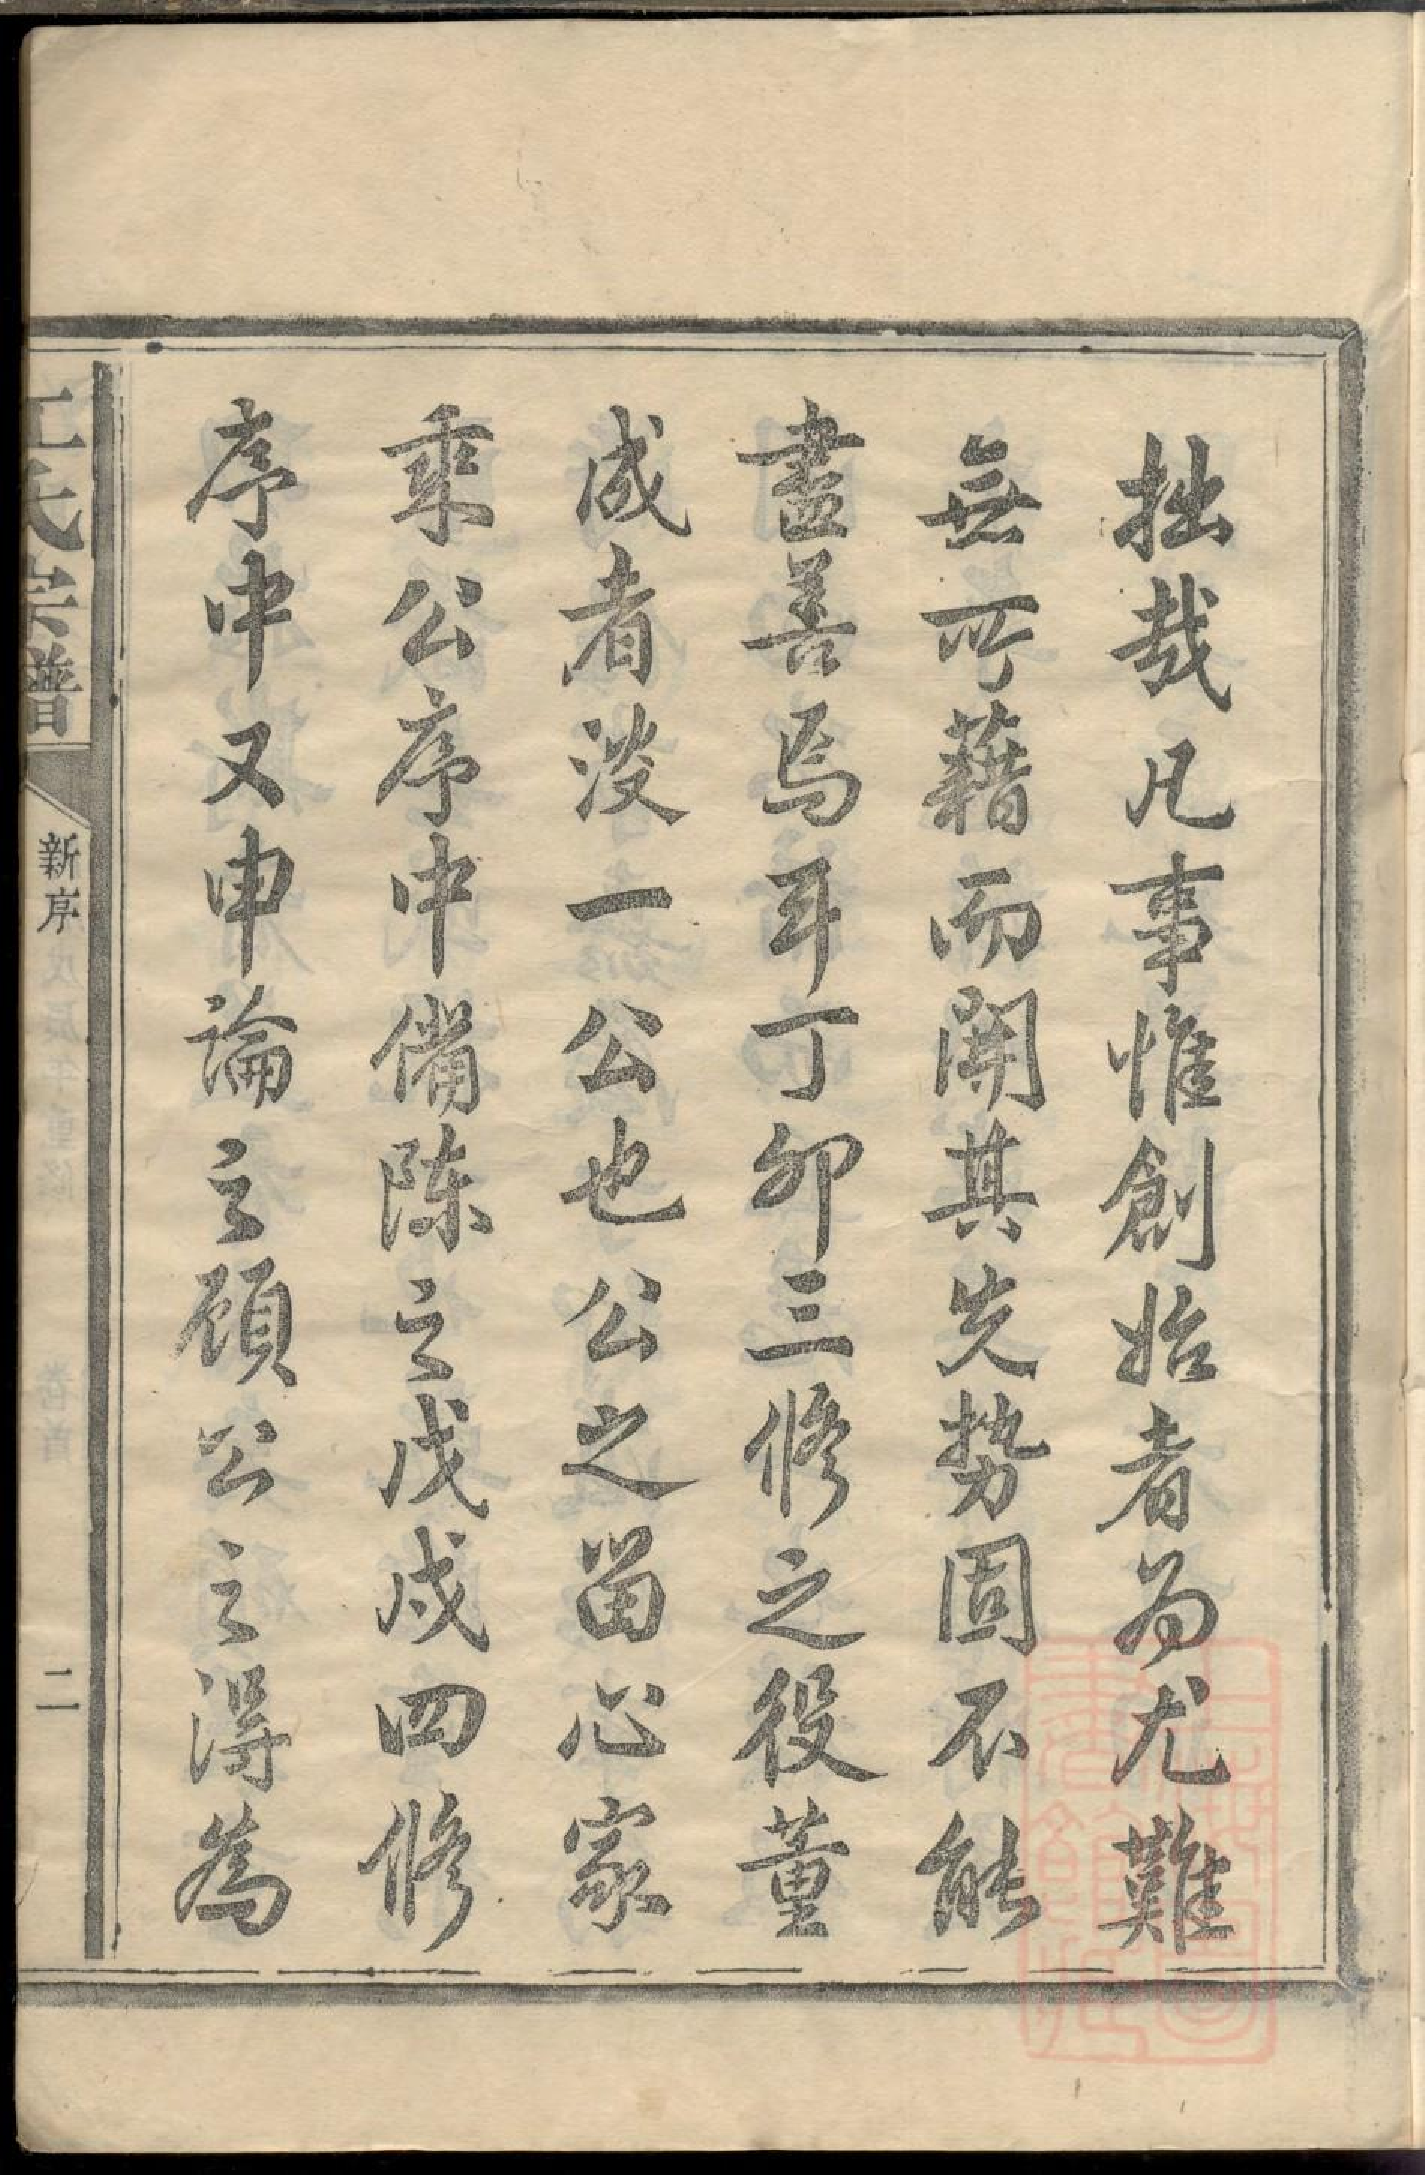 拙哉凡事惟創始者為尤難
無所藉而開其先勢固不能
盡善焉耳丁卯三修之役董
成者淡一公也公之留心家
乘公序中備陳之戊戌四修
序中又申論之顧公之得為
氏宗譜
新序
二